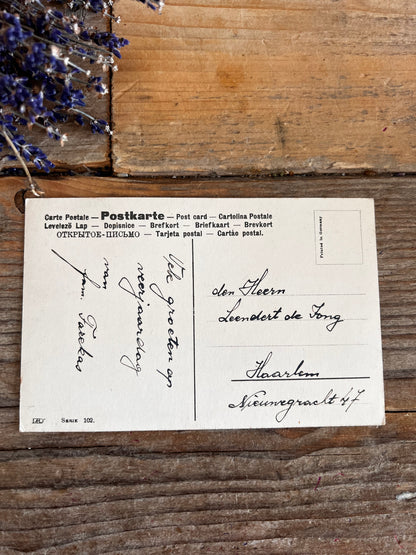 Carte Postale — Postkarte — Post card — Cartolina Postale
Levelező Lap — Dopisnice — Brefkort — Briefkaart — Brevkort
ОТКРЫТОЕ-ПИСЬМО — Tarjeta postal — Cartão postal.
Printed in Germany
Vele groeten op
verjaardag
van
fam.
den Heern
Leendert de Jong
Haarlem
Nieuwegracht 47
Serie 102.